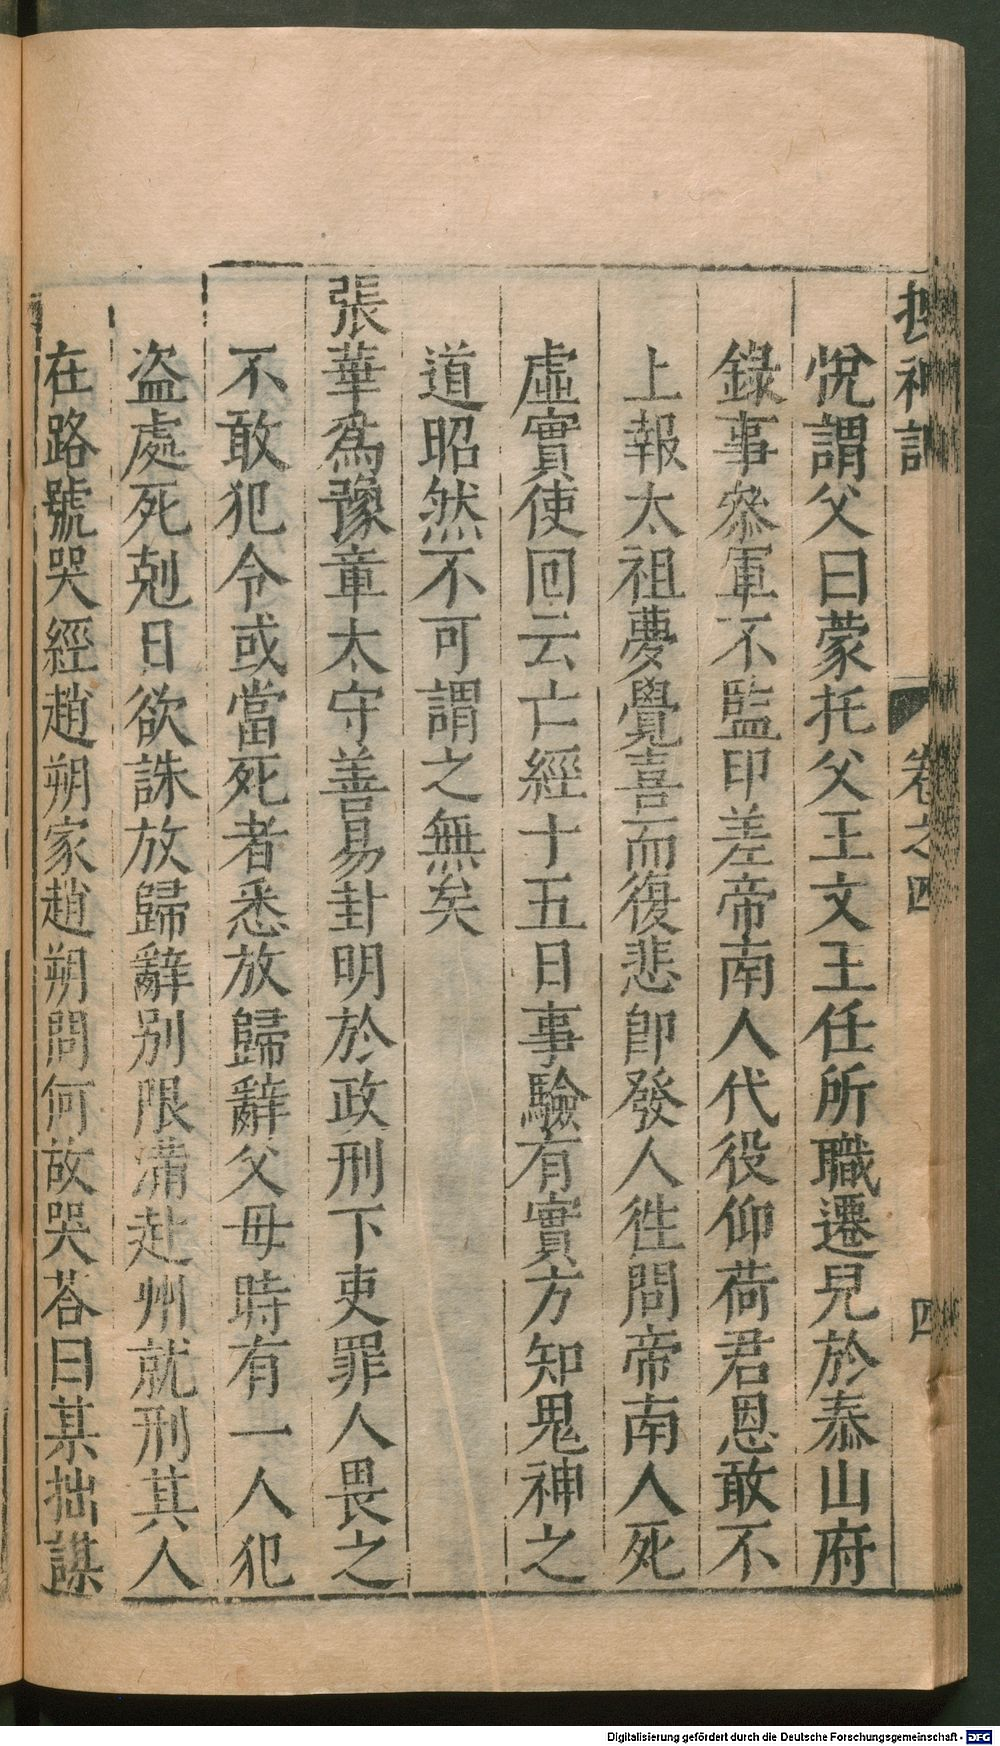 搜神記
卷之四
四
悅謂父曰蒙托父王文王任所職遷兒於泰山府
錄事叅軍不監印差帝南人代役仰荷君恩敢不
上報太祖夢覺喜而復悲卽發人徃問帝南人死
虛實使回云亡經十五日事驗有實方知鬼神之
道昭然不可謂之無矣
張華爲豫章太守善易封明於政刑下吏罪人畏之
不敢犯令或當死者悉放歸辭父母時有一人犯
盗處死剋日欲誅放歸辭别限滿赴州就刑其人
在路號哭經趙朔家趙朔問何故哭荅曰某拙謀
Digitalisierung gefördert durch die Deutsche Forschungsgemeinschaft - DFG